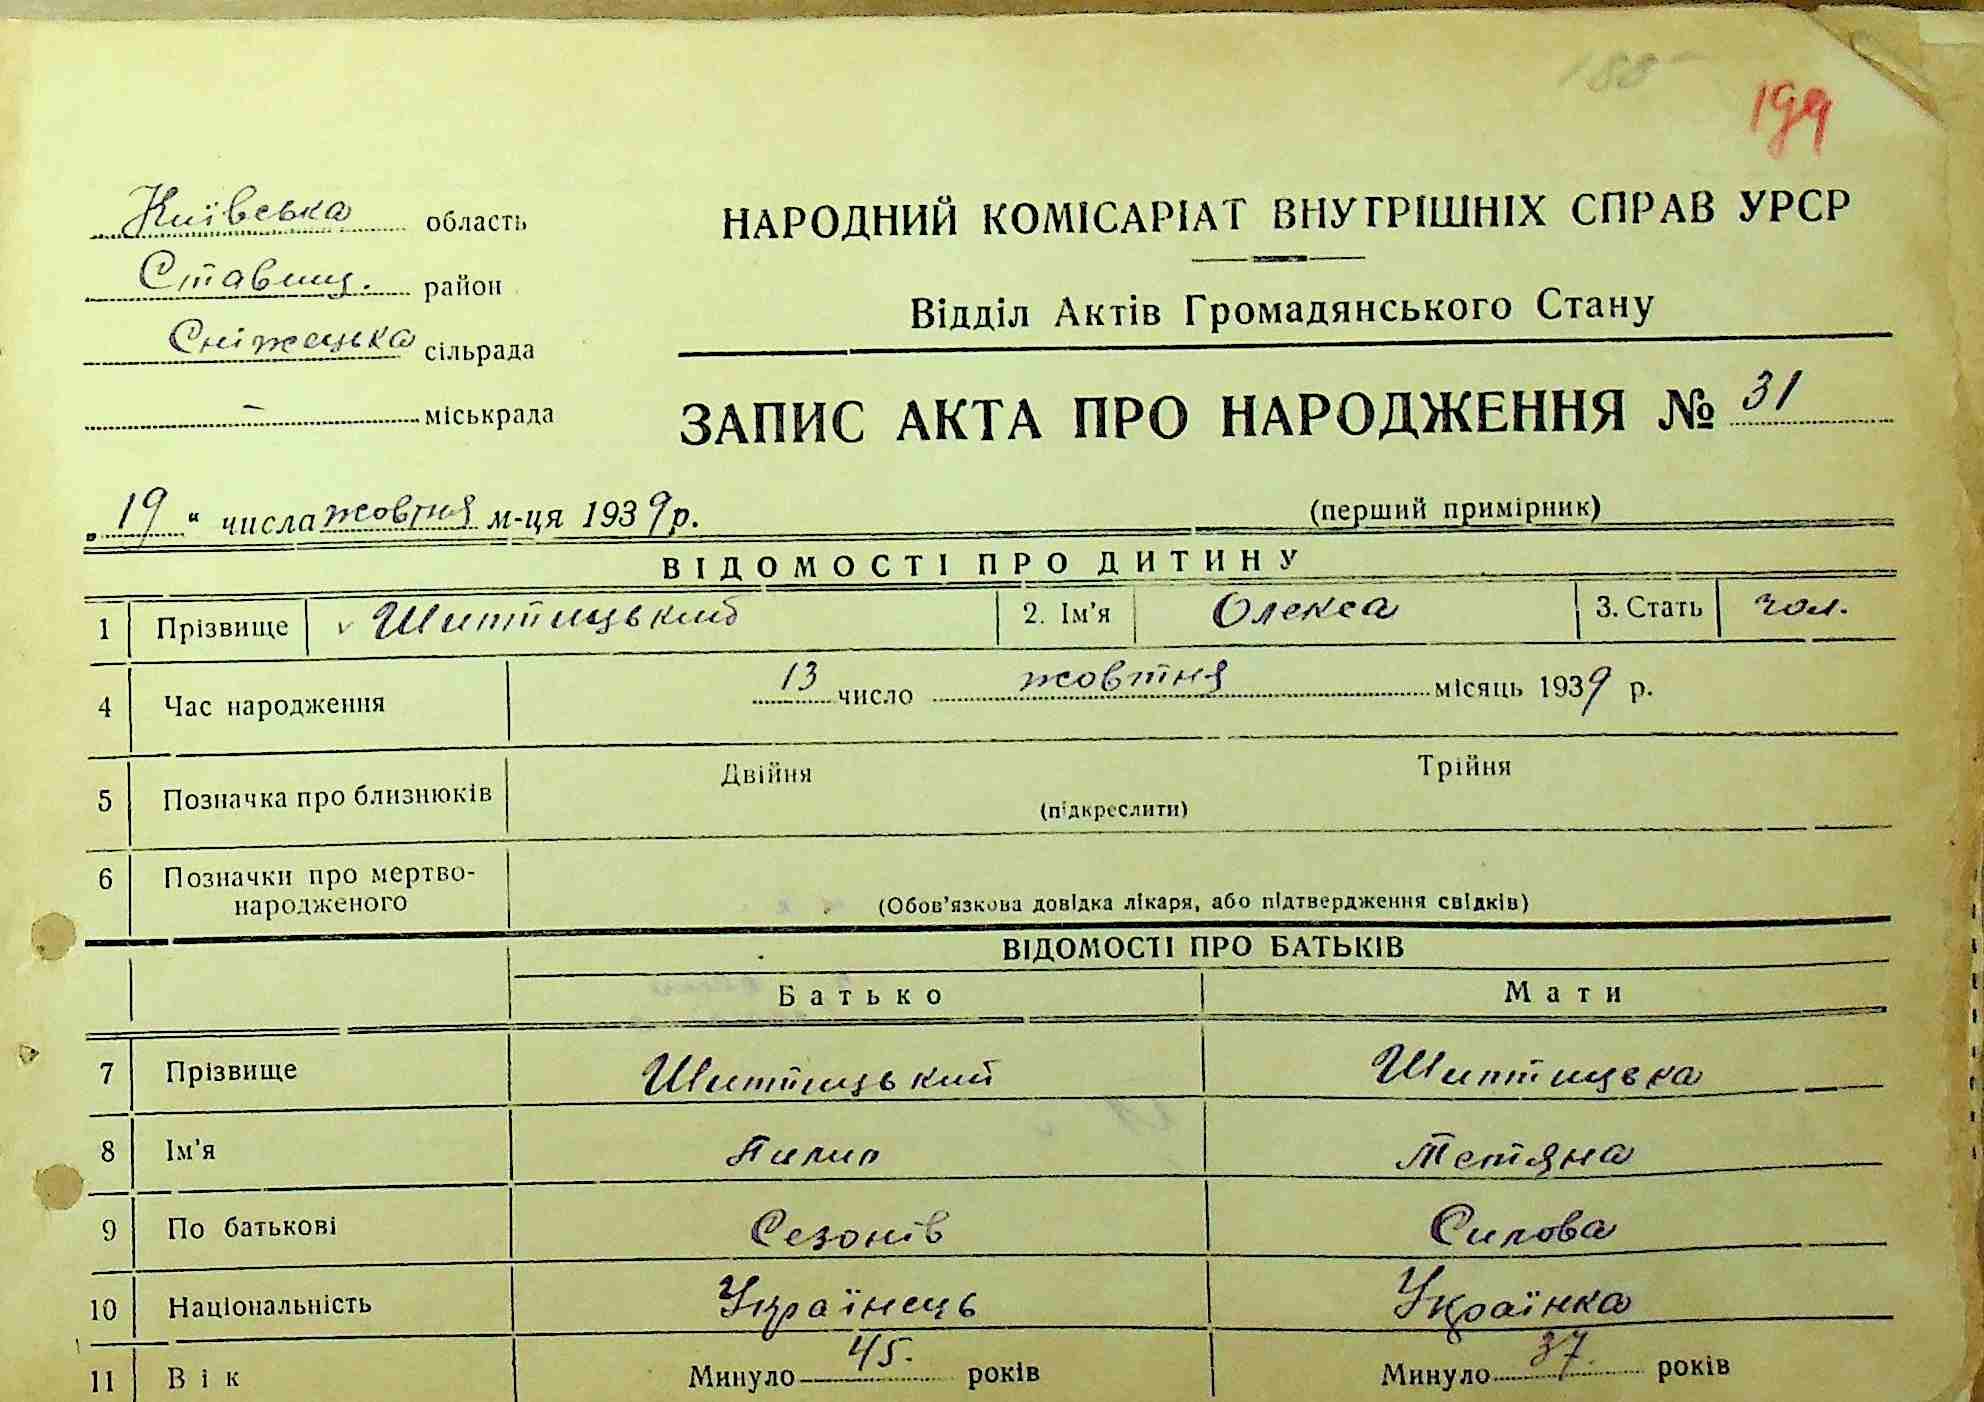 199
Київська область
НАРОДНИЙ КОМІСАРІАТ ВНУТРІШНІХ СПРАВ УРСР
Ставищ. район
Відділ Актів Громадянського Стану
Сніжецька сільрада
— міськрада
ЗАПИС АКТА ПРО НАРОДЖЕННЯ № 31
„19“ числа жовтня м-ця 1939 р.
(перший примірник)
ВІДОМОСТІ ПРО ДИТИНУ
1 Прізвище v Шиптицький 2. Ім'я Олекса 3. Стать чол.
4 Час народження 13 число жовтня місяць 1939 р.
5 Позначка про близнюків Двійня Трійня
(підкреслити)
6 Позначки про мертво-
народженого (Обов'язкова довідка лікаря, або підтвердження свідків)
ВІДОМОСТІ ПРО БАТЬКІВ
Батько Мати
7 Прізвище Шиптицький Шиптицька
8 Ім'я Пилип Тетяна
9 По батькові Сезонів Силова
10 Національність Українець Українка
11 Вік Минуло 45. років Минуло 37. років